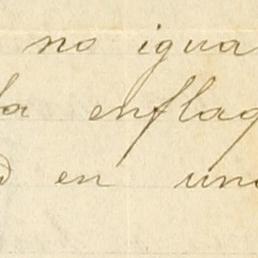 no igua
la enflaq
en una